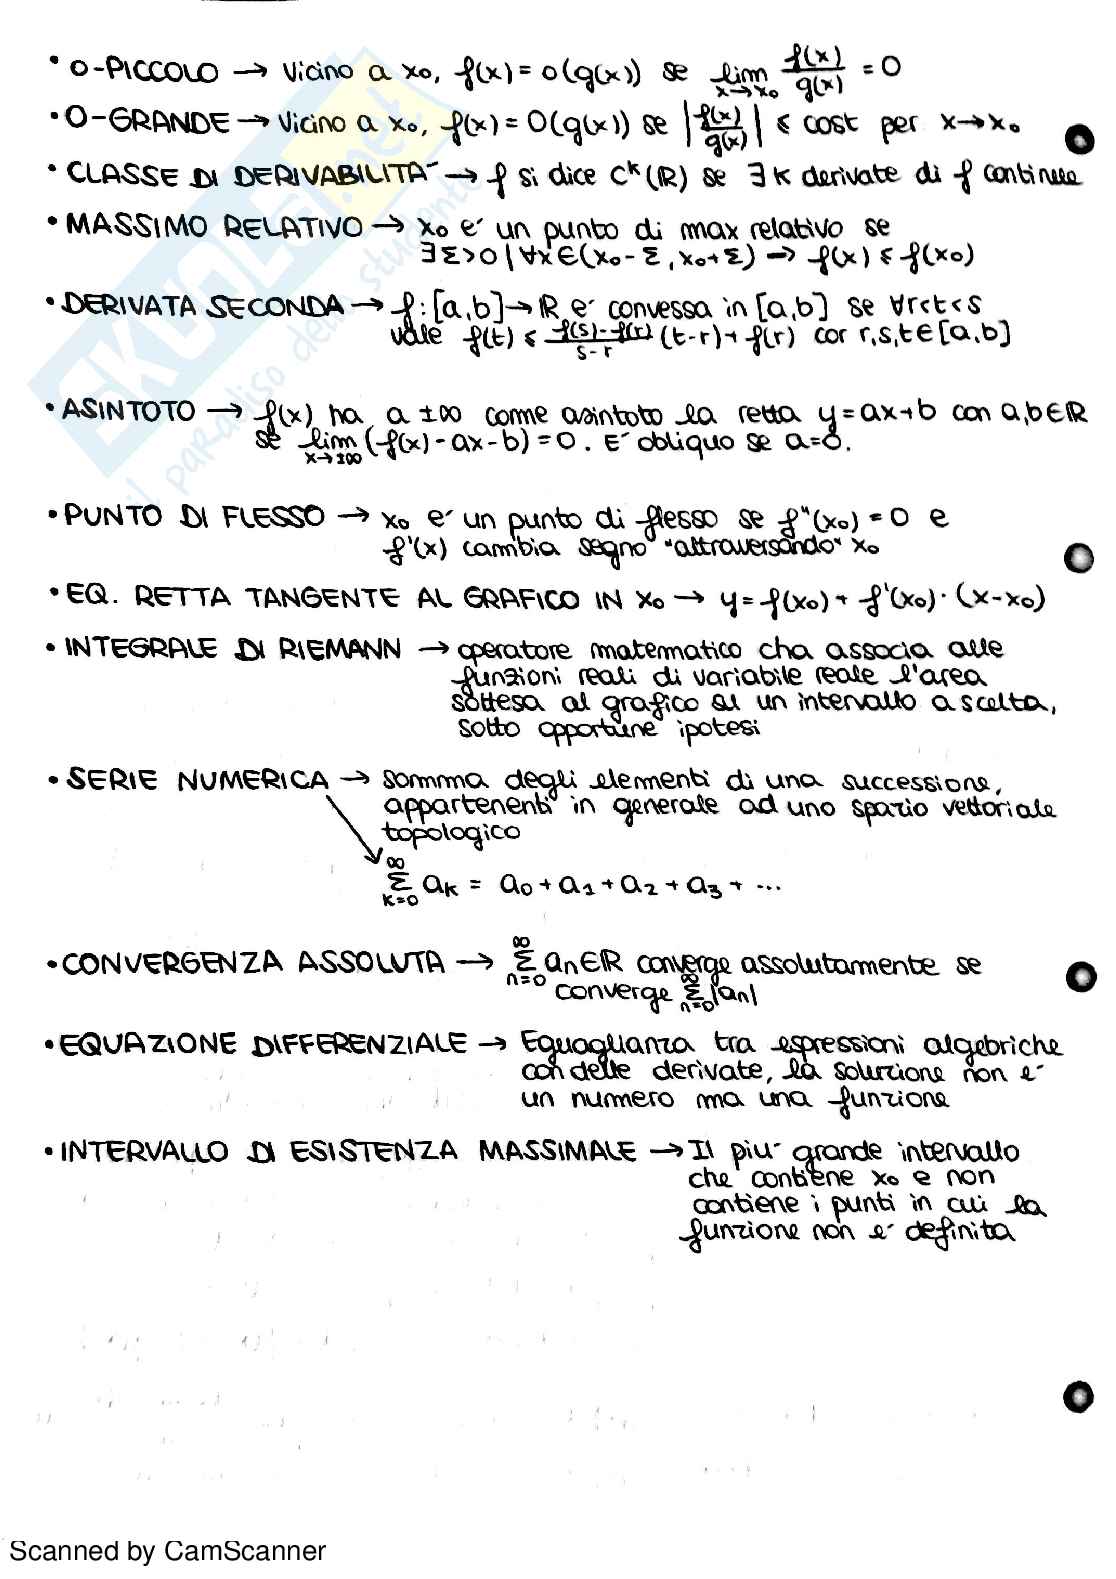 • O-PICCOLO → Vicino a x₀, f(x) = o(g(x)) se lim x→x₀ f(x)/g(x) = 0
• O-GRANDE → Vicino a x₀, f(x) = O(g(x)) se |f(x)/g(x)| ≤ cost per x→x₀
• CLASSE DI DERIVABILITA´ → f si dice Cᵏ(ℝ) se ∃ k derivate di f continue
• MASSIMO RELATIVO → x₀ e´ un punto di max relativo se
∃ Σ>0 | ∀x∈(x₀-Σ, x₀+Σ) → f(x) ≤ f(x₀)
• DERIVATA SECONDA → f:[a,b]→ℝ e´ convessa in [a,b] se ∀r<t<s
vale f(t) ≤ f(s)-f(r)/s-r (t-r)+f(r) con r,s,t∈[a,b]
• ASINTOTO → f(x) ha a ±∞ come asintoto la retta y=ax+b con a,b∈ℝ
se lim x→±∞ (f(x)-ax-b)=0. E´ obliquo se a=0.
• PUNTO DI FLESSO → x₀ e´ un punto di flesso se f"(x₀)=0 e
f'(x) cambia segno "attraversando" x₀
• EQ. RETTA TANGENTE AL GRAFICO IN x₀ → y=f(x₀)+f'(x₀)·(x-x₀)
• INTEGRALE DI RIEMANN → operatore matematico cha associa alle
funzioni reali di variabile reale l'area
sottesa al grafico su un intervallo a scelta,
sotto opportune ipotesi
• SERIE NUMERICA → somma degli elementi di una successione,
appartenenti in generale ad uno spazio vettoriale
topologico
∞ Σ k=0 aₖ = a₀+a₁+a₂+a₃+...
• CONVERGENZA ASSOLUTA → ∞ Σ n=0 aₙ∈ℝ converge assolutamente se
converge ∞ Σ n=0 |aₙ|
• EQUAZIONE DIFFERENZIALE → Eguaglianza tra espressioni algebriche
con delle derivate, la soluzione non e´
un numero ma una funzione
• INTERVALLO DI ESISTENZA MASSIMALE → Il piu´ grande intervallo
che contiene x₀ e non
contiene i punti in cui la
funzione non e´ definita
SKUOLA.net
il paradiso dello studente
Scanned by CamScanner